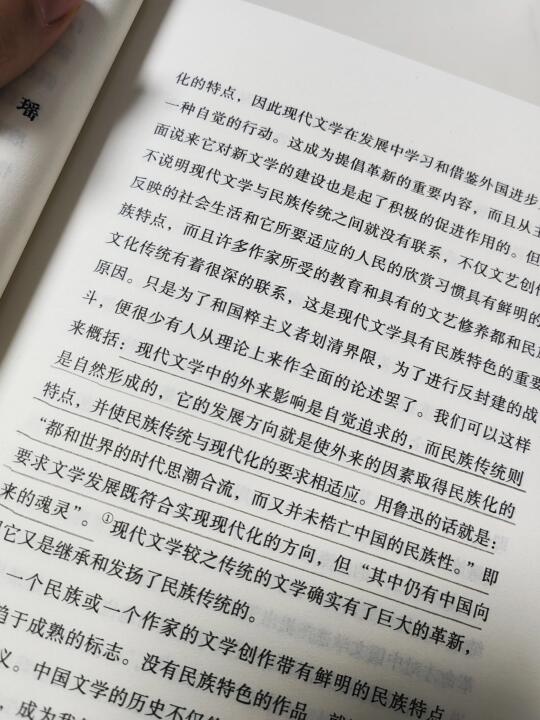 瑶
化的特点，因此现代文学在发展中学习和借鉴外国进步
一种自觉的行动。这成为提倡革新的重要内容，而且从主
面说来它对新文学的建设也是起了积极的促进作用的。但
不说明现代文学与民族传统之间就没有联系，不仅文艺创作
反映的社会生活和它所要适应的人民的欣赏习惯具有鲜明的
族特点，而且许多作家所受的教育和具有的文艺修养都和民族
文化传统有着很深的联系，这是现代文学具有民族特色的重要
原因。只是为了和国粹主义者划清界限，为了进行反封建的战
斗，便很少有人从理论上来作全面的论述罢了。我们可以这样
来概括：现代文学中的外来影响是自觉追求的，而民族传统则
是自然形成的，它的发展方向就是使外来的因素取得民族化的
特点，并使民族传统与现代化的要求相适应。用鲁迅的话就是：
“都和世界的时代思潮合流，而又并未梏亡中国的民族性。”即
要求文学发展既符合实现现代化的方向，但“其中仍有中国向
来的魂灵”。①现代文学较之传统的文学确实有了巨大的革新，
它又是继承和发扬了民族传统的。
一个民族或一个作家的文学创作带有鲜明的民族特点
趋于成熟的标志。没有民族特色的作品
义。中国文学的历史不仅
成为我